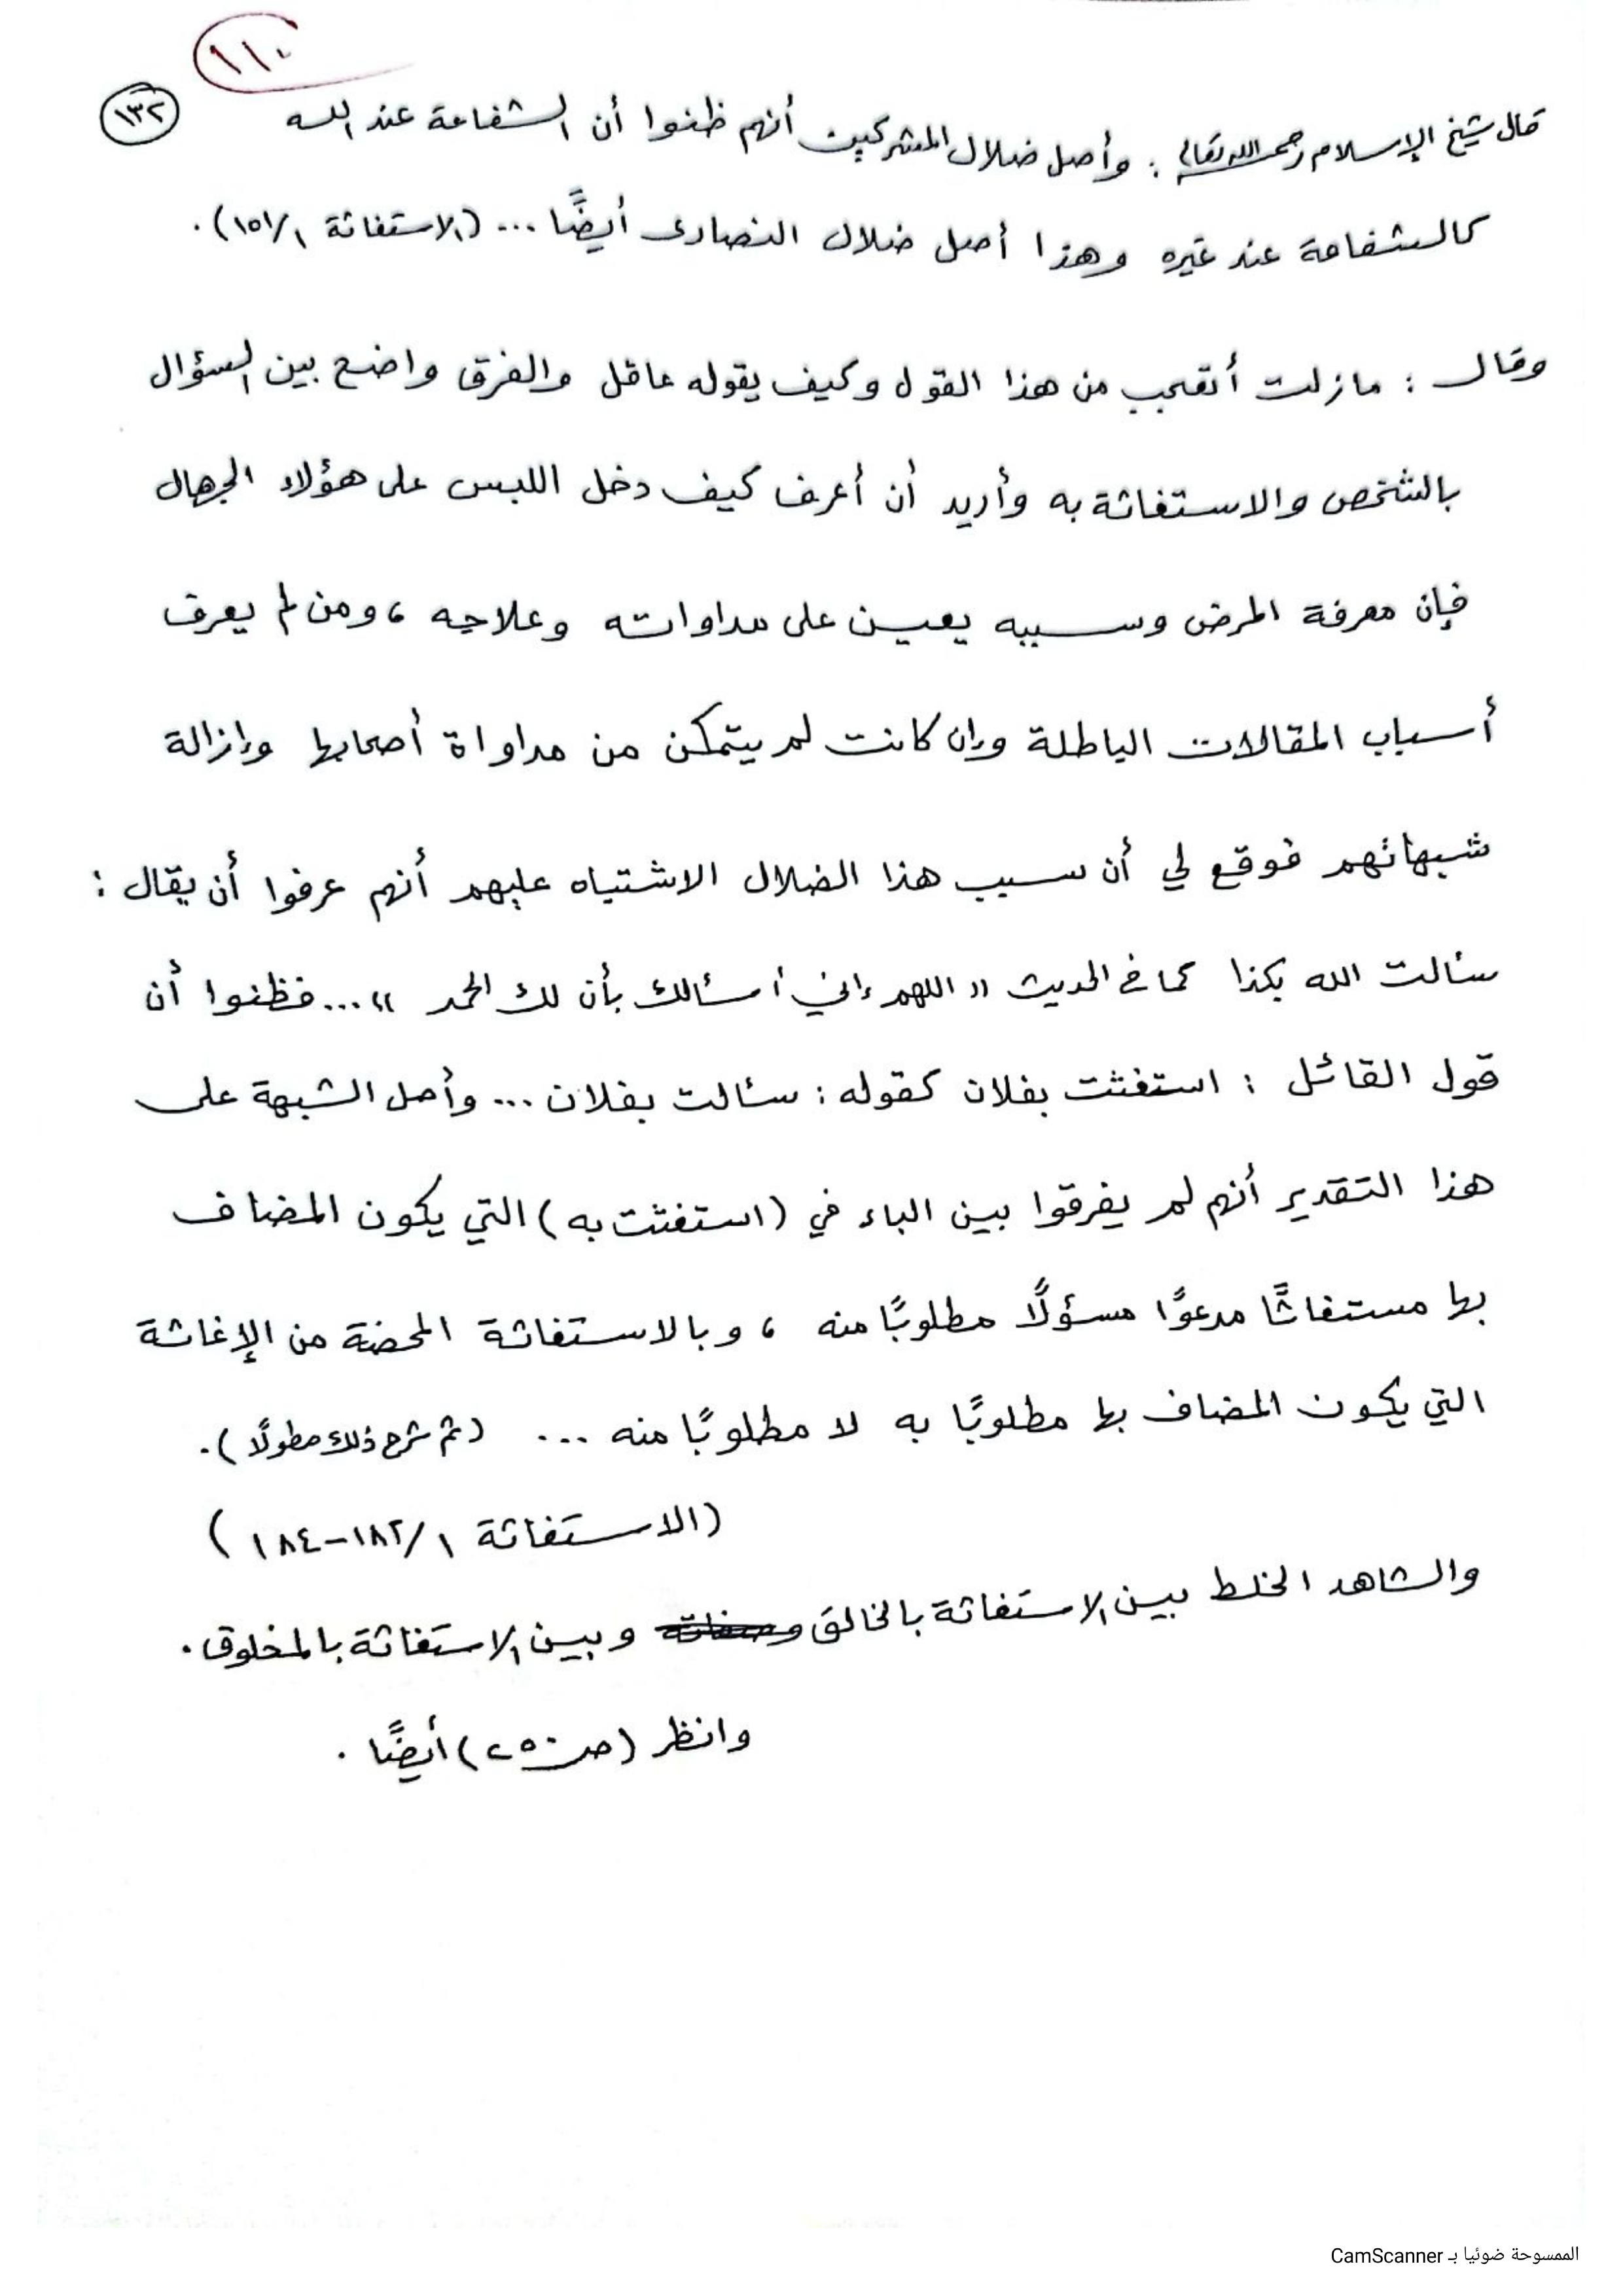 ١١٠
١٣٢
قال شيخ الإسلام رحمه الله تعالى : وأصل ضلال المشركين أنهم ظنوا أن الشفاعة عند الله
كالشفاعة عند غيره وهذا أصل ضلال النصارى أيضًا ... (الاستغاثة ١/١٥١).
وقال : مازلت أتعجب من هذا القول وكيف يقوله عاقل والفرق واضح بين السؤال
بالشخص والاستغاثة به وأريد أن أعرف كيف دخل اللبس على هؤلاء الجهال
فإن معرفة المرض وسببه يعين على مداواته وعلاجه ، ومن لم يعرف
أسباب المقالات الباطلة وإن كانت لم يتمكن من مداواة أصحابها وإزالة
شبهاتهم فوقع لي أن سبب هذا الضلال الاشتباه عليهم أنهم عرفوا أن يقال :
سئالت الله بكذا كما في الحديث " اللهم إني أسئالك بأن لك الحمد " ... فظنوا أن
قول القائل : استغثت بفلان كقوله : سئالت بفلان ... وأصل الشبهة على
هذا التقدير أنهم لم يفرقوا بين الباء في (استغثت به) التي يكون المضاف
بها مستغاثًا مدعوًا مسؤلًا مطلوبًا منه ، وبالاستغاثة المحضة من الإغاثة
التي يكون المضاف بها مطلوبًا به لا مطلوبًا منه ... (ثم شرح ذلك مطولًا).
(الاستغاثة ١/١٨٢-١٨٤)
والشاهد الخلط بين الاستغاثة بالخالق وبين الاستغاثة بالمخلوق.
وانظر (ص٢٥٠) أيضًا .
الممسوحة ضوئيا بـ CamScanner